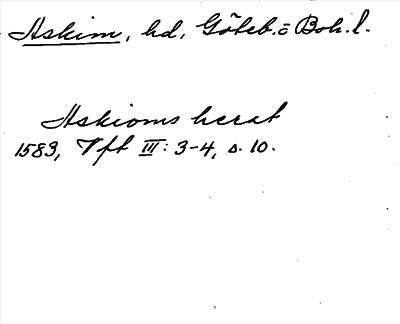 Askim, hd, Göteb. o Boh. l.
Askioms herat
1583, Vft III: 3-4, s. 10.